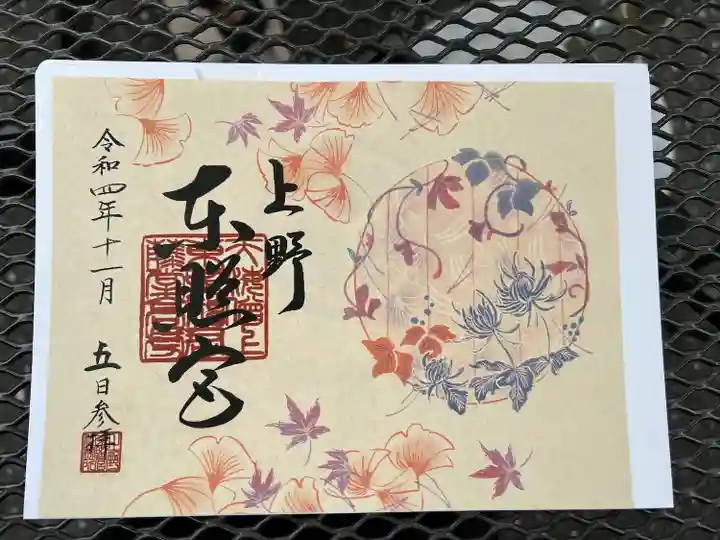 上野
東照宮
令和四年十一月五日参拝